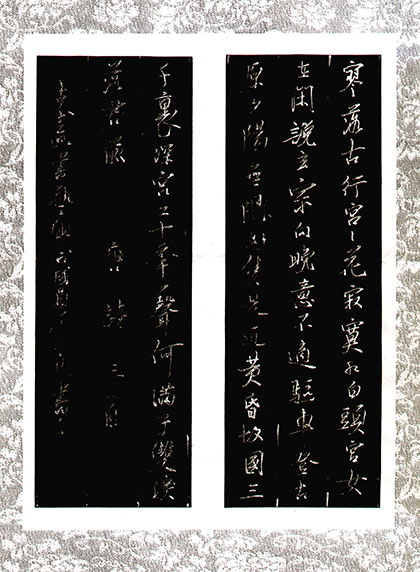 寥落古行宮〻花寂寞紅白頭宮女
在閑說玄宗向晚意不適驅車登古
原夕陽無限好隻是近黃昏故國三
千裏深宮二十年一聲何滿子雙淚
落君前 唐詩三首